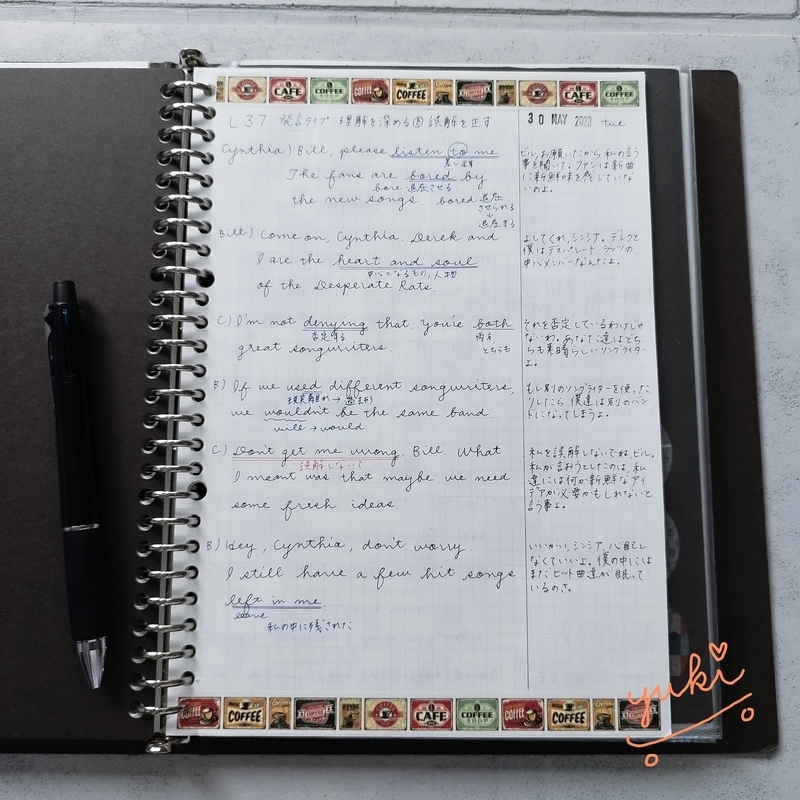 CAFE COFFEE COFFEE COFFEE CAFE COFFEE
L37 発言タイプ 理解を深める⑧ 誤解を正す
30 MAY 2023 tue
Cynthia) Bill, please listen to me
The fans are bored by
bore 退屈させる
the new songs bored 退屈
させられる
↓
退屈する
ビル、お願いだから私の言う
事を聞いて。ファンは新曲
に新鮮味を感じていな
いのよ。
Bill) Come on, Cynthia. Derek and
I are the heart and soul
中心となるもの, 人物
of the Desperate Rats.
よしてくれ, シンシア。デレクと
僕はデスパレート・ラッツの
中心メンバーなんだよ。
C) I'm not denying that. You're both
否定する 両方
great songwriters どちらも
それを否定しているわけじゃ
ないわ。あなた達はどち
らも素晴らしいソングライター
よ。
B) If we used different songwriters,
現実離れ → 過去形
we wouldn't be the same band.
will → would
もし別のソングライターを使った
りしたら 僕達は別のバン
ドになってしまうよ。
C) Don't get me wrong, Bill. What
誤解しないで
I meant was that maybe we need
some fresh ideas.
私を誤解しないでね, ビル。
私が言おうとしたのは, 私
達には何か新鮮なアイ
デアが必要かもしれないと
言う事よ。
B) Hey, Cynthia, don't worry.
I still have a few hit songs
left in me.
leave
私の中に残された
いいかい, シンシア, 心配し
なくていいよ。僕の中には
まだヒット曲達が眠って
いるのさ。
COFFEE COFFEE CAFE COFFEE SHOP COFFEE COFFEE
yuki